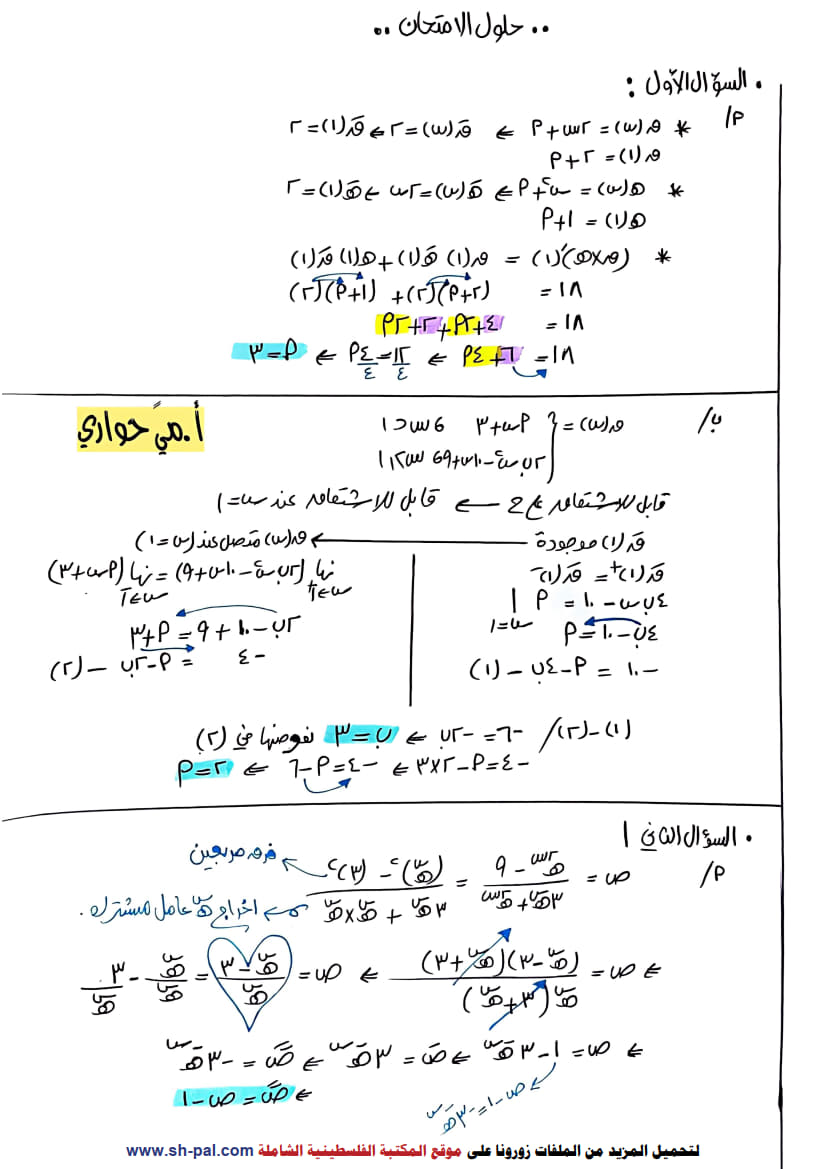 .. حلول الامتحان ..
• السؤال الأول :
أ/
* ق(س) = ٢س + أ ⇐ قَ(س) = ٢ ⇐ قَ(١) = ٢
ق(١) = ٢ + أ
* هـ(س) = س² + أ ⇐ هـَ(س) = ٢س ⇐ هـَ(١) = ٢
هـ(١) = ١ + أ
* (ق×هـ)َ(١) = ق(١) هـَ(١) + هـ(١) قَ(١)
١٨ = (٢+أ)(٢) + (١+أ)(٢)
١٨ = ٤ + ٢أ + ٢ + ٢أ
١٨ = ٦ + ٤أ ⇐ ١٢/٤ = ٤أ/٤ ⇐ أ = ٣
أ. ميّ حواري
ب/ ق(س) = { أس + ٣ ، س > ١
٢ب س² − ١٠س + ٩ ، س ≤ ١
قابل للاشتقاق على ح ⇐ قابل للاشتقاق عند س = ١
قَ(١) موجودة ← ق(س) متصل عند (س = ١)
قَ(١)⁺ = قَ(١)⁻
٤ب س − ١٠ = أ | س=١
٤ب − ١٠ = أ
−١٠ = أ − ٤ب − (١)
نهـا (٢ب س² − ١٠س + ٩) = نهـا (أس + ٣)
س←١⁺ س←١⁻
٢ب − ١٠ + ٩ = أ + ٣
−٤ = أ − ٢ب − (٢)
(١) − (٢) / −٦ = −٢ب ⇐ ب = ٣ نعوضها في (٢)
−٤ = أ − ٢×٣ ⇐ −٤ = أ − ٦ ⇐ أ = ٢
• السؤال الثاني |
أ/
ص = (هـ²ˢ − ٩)/(٣هـˢ + هـ²ˢ) = ((هـˢ)² − (٣)²)/(٣هـˢ + هـˢ×هـˢ)
فرق مربعين
⇐ اخراج هـˢ عامل مشترك .
⇐ ص = (هـˢ − ٣)(هـˢ + ٣)/(هـˢ(٣ + هـˢ)) ⇐ ص = (هـˢ − ٣)/هـˢ = هـˢ/هـˢ − ٣/هـˢ
⇐ ص = ١ − ٣هـ⁻ˢ ⇐ صَ = ٣هـ⁻ˢ ⇐ صً = −٣هـ⁻ˢ
ص − ١ = −٣هـ⁻ˢ
⇐ صً = ص − ١
لتحميل المزيد من الملفات زورونا على موقع المكتبة الفلسطينية الشاملة www.sh-pal.com